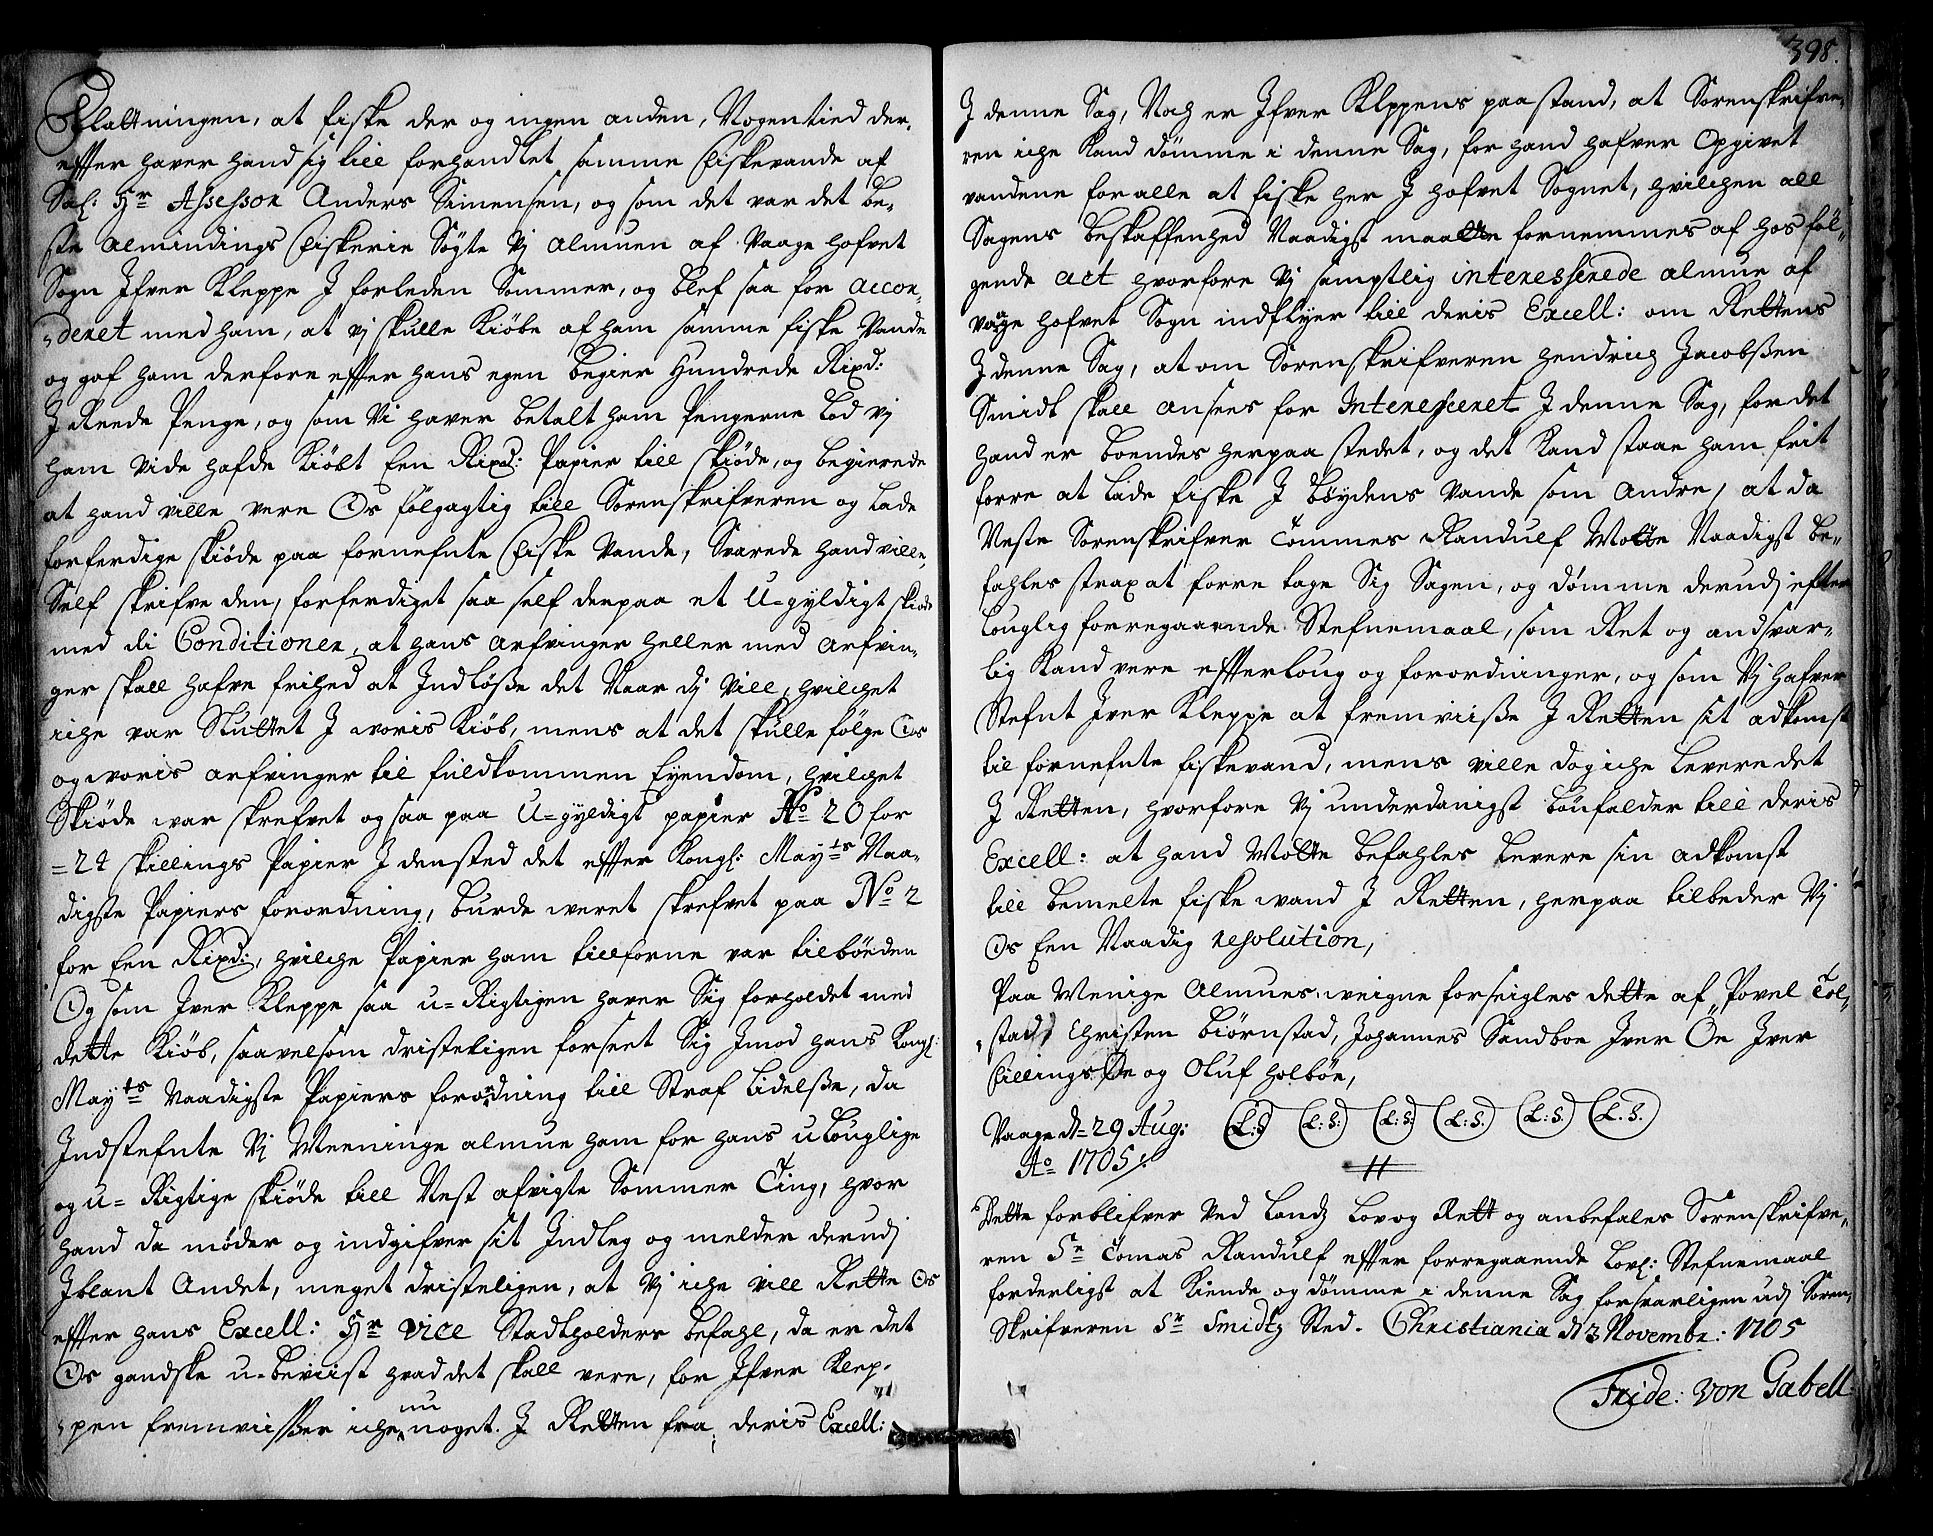 Slettningen, at fiske der og ingen anden, Nogen tied der,
effter haver hand sig till forhandlet samme Fiskevande af
Sal: Hr Assessor Anders Simensen, og som det var det be-
ste almindings Fiskerie Søgte Vj almuen af Vaage hofvet
Sogn Ifver Kleppe J forleden Sommer, og blef saa for accor,
,deret med ham, at vj skulle Kiøbe af ham samme fiske Vande
og gaf ham derfore effter hans egen begier Hundrede Rixd:
J Reede Penge, og som Vi haver betalt ham Pengerne bød vj
ham vide hafde Kiøbt Een Rixd: Papier till skiøde, og begierede
at hand ville vere Os følgagtig till Sorenskrifveren og lade
forferdige skiøde paa fornefnte Fiske Vande, Svarede hand ville,
Self skrifve den, forferdiget saa self derpaa et U-gyldigt skiøde
med di Conditioner, at hans arfvinger heller med arfvin-
ger skall hafve frihed at Indløsse det Naar dj vill, hvilchet
iche var Sluttet J voris Kiøb, mens at det skulle følge Os
og voris arfvinger til fuldkommen Eyendom, hvilchet
Skiøde var skrefvet og saa paa U-gyldigt papier No 20 for
=24 skillings Papier J densted det effter Kongl: Mayts Naa-
digste Papiers forordning, burde veret skrefvet paa No 2
for Een Rixd:, hvilche Papier ham tillforne var tilbøeden
Og som Iver Kleppe saa u-Rigtigen haver Sig forholdet med
dette Kiøb, saavelsom dristeligen forseet Sig Jmod hans Kongl:
Mayts Naadigste Papiers forordning till Straf lidelsse, da
Indstefnte Vj Meeninge almue ham for hans ulouglige
og u-Rigtige skiøde till Nest afvigte Sommer Ting, hvor
hand da møder og indgifver sit Indleg og melder derudj
Iblant Andet, meget dristeligen, at Vj iche vill Rette Os
effter hans Excell: Hr Vice Stadtholders befahl, da er det
Os gandske u-beviist hvad det skall vere, for Ifver Klep-
,pen fremvisser iche nu noget J Retten fra deris Excell:
398.
J denne Sag, Noch er Ifver Kleppens paastand, at Sorenskrifve,
ren iche Kand dømme i denne Sag, for hand hafver Opgivet
vandene for alle at fiske her J hofvet Sognet, hvilchen all
Sagens beskaffenhed Naadigst maatte fornemmes af hos føl,,
gende act hvorfore Vj samptlig interesserede almue af
Vaage hofvet Sogn indflyer till deris Excell: om Rettens
J denne Sag, at om Sorenskrifveren Hendrich Jacobssen
Smidt skall ansees for Interesseret J denne Sag, for det
hand er boendes her paa stedet, og det Kand staae ham frit
forre at lade fiske J bøydens Vande som andre, at da
Neste Sorenskrifver Tommes Randulf Motte Naadigst be-
fahles strax at forre tage Sig Sagen, og dømme derudj effter
louglig forregaaende Stefnemaal, som Ret og andsvar-
lig Kand vere effter loug og forordninger, og som Vj hafver
Stefnt Iver Kleppe at fremviisse J Retten sit adkomst
til fornefnte fiskevand, mens ville dog iche levere det
J Retten, hvorfore Vj underdanigst bønfalder till deris
Excell: at hand Motte befahles levere sin adkomst
till bemelte fiske vand J Retten, herpaa tilbeder Vj
Os Een Naadig resolution,
Paa Menige Almues veigne forseigles dette af Povel Tol-
,stad, Christen Biørnstad, Johannes Sandboe Iver Øe Iver
Fillings Øe og Oluf Holbøe,
Vaage d= 29 Aug: (L:S) (L:S:) (L:S:) (L:S.) (L:S.) (L.S.)
Ao 1705.
Dette forblifver Ved Landz Lov og Rett og anbefales Sorenskrifve,
ren Sr Tomas Randulf effter forregaaende Lovl: Stefnemaal
forderligst at Kiende og dømme i denne Sag forsvarligen udj Soren,
Skrifveren Sr Smidtz Sted. Christiania d 3 Novembr: 1705
Fride: von Gabell.